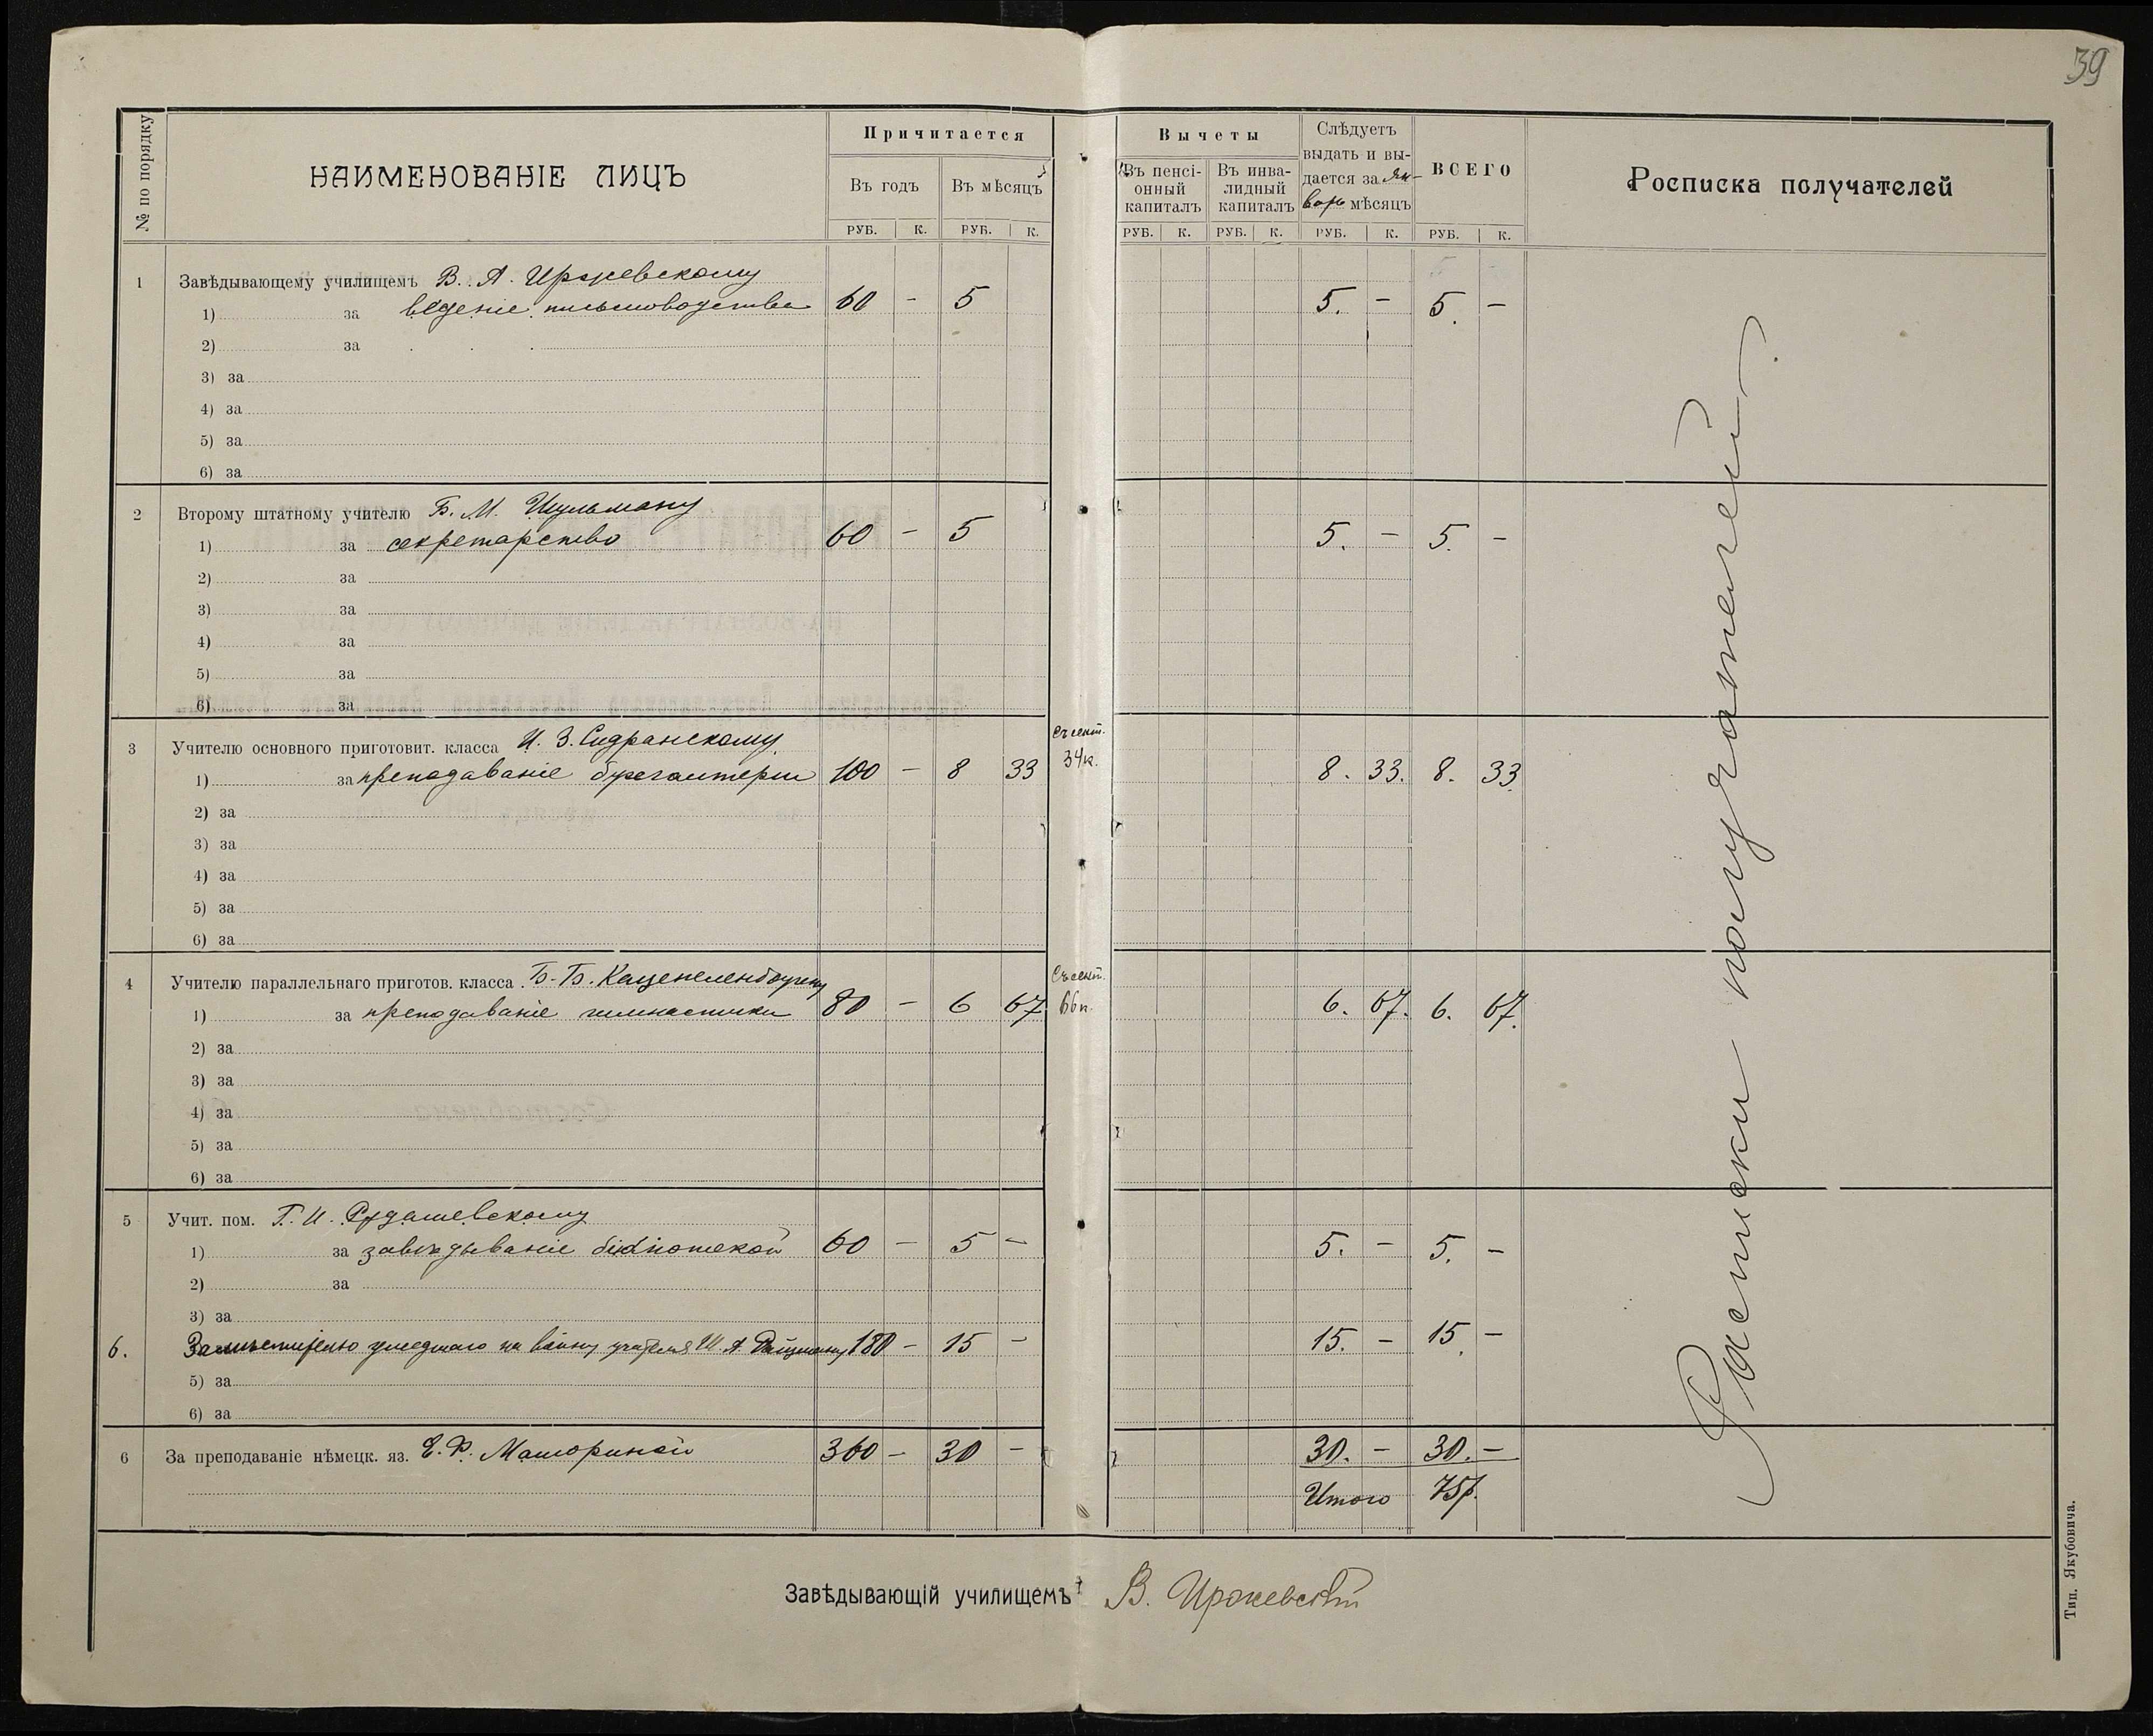 39
№ по порядку
НАИМЕНОВАНІЕ ЛИЦЪ
Причитается
Въ годъ
Въ мѣсяцъ
РУБ. К. РУБ. К.
Вычеты
Въ пенсі-
онный
капиталъ
Въ инва-
лидный
капиталъ
Слѣдуетъ
выдать и вы-
дается за Ян-
варь мѣсяцъ
ВСЕГО
Росписка получателей
РУБ. К. РУБ. К. РУБ. К. РУБ. К.
1 Завѣдывающему училищемъ В. А. Иржевскому
1) за веденіе письмоводства 60 – 5 5. – 5. –
2) за
3) за
4) за
5) за
6) за
2 Второму штатному учителю Б. М. Шульману
1) за секретарство 60 – 5 5. – 5. –
2) за
3) за
4) за
5) за
6) за
3 Учителю основного приготовит. класса И. З. Сидранскому Съ сент.
1) за преподаваніе бухгалтеріи 100 – 8 33 34к. 8. 33. 8. 33
2) за
3) за
4) за
5) за
6) за
4 Учителю параллельнаго приготов. класса Б. Б. Каценеленбогену Съ сент.
1) за преподаваніе гимнастики 80 – 6 67 66к. 6. 67. 6. 67.
2) за
3) за
4) за
5) за
6) за
5 Учит. пом. Г. И. Рудашевскому
1) за завѣдываніе библіотекой 60 – 5 – 5. – 5. –
2) за
3) за
6. Замѣстителю ушедшаго на войну учителя Ш. А. 180 – 15 – 15. – 15 –
5) за
6) за
6 За преподаваніе нѣмецк. яз. Е. Ф. Машориной 360 – 30 – 30. – 30. –
Итого 75р.
Расписки получателей.
Завѣдывающій училищемъ В. Иржевскій
Тип. Якубовича.